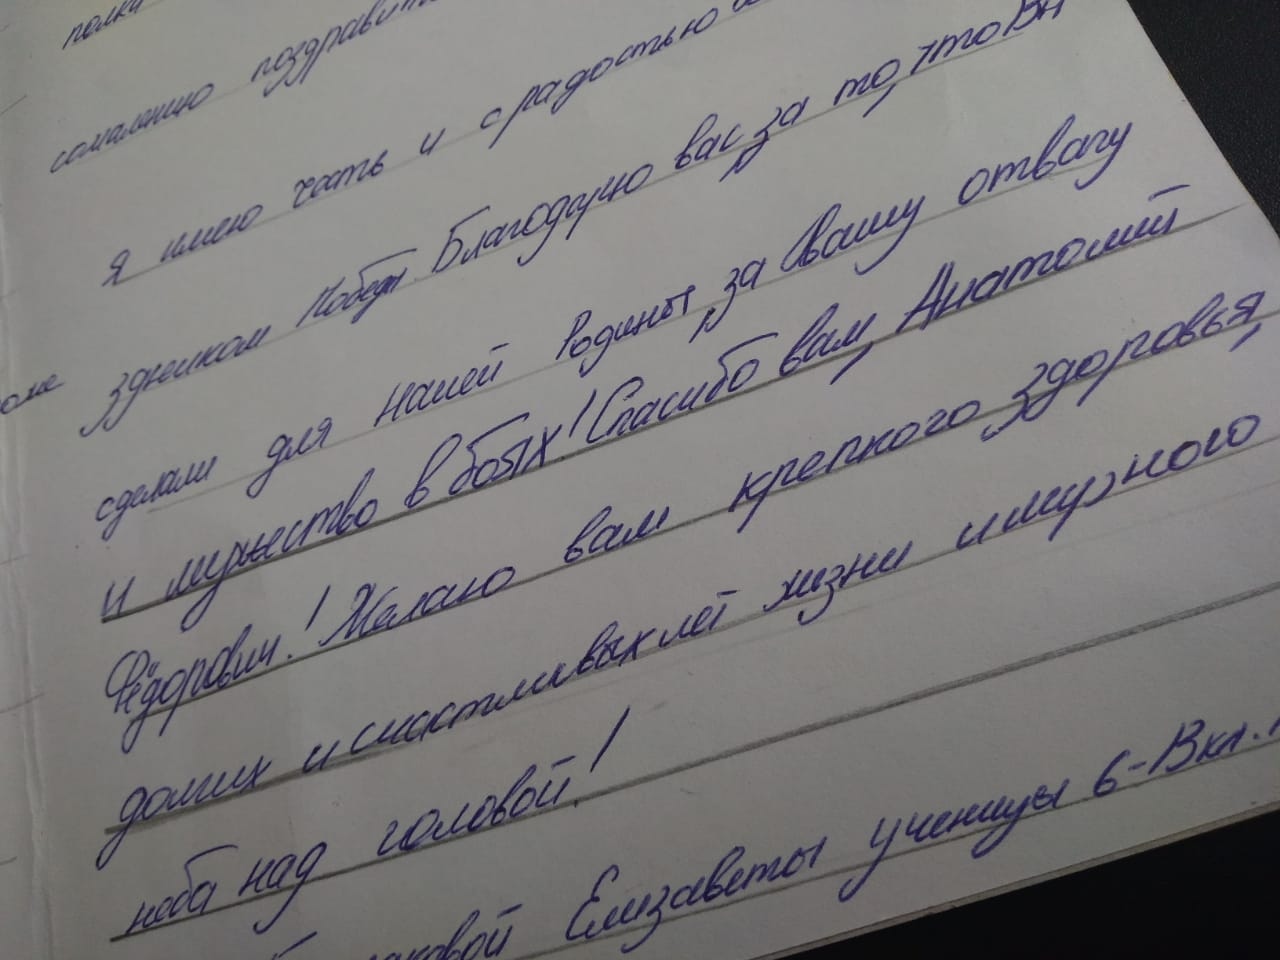 полка
сожалению поздравить
я имею честь и с радостью
здником Победы. Благодарю вас за то, что Вы
сделали для нашей Родины, за Вашу отвагу
и мужество в боях! Спасибо вам, Анатолий
Фёдорович! Желаю вам крепкого здоровья,
долгих и счастливых лет жизни и мирного
неба над головой!
Елизаветы ученицы 6-В кл.